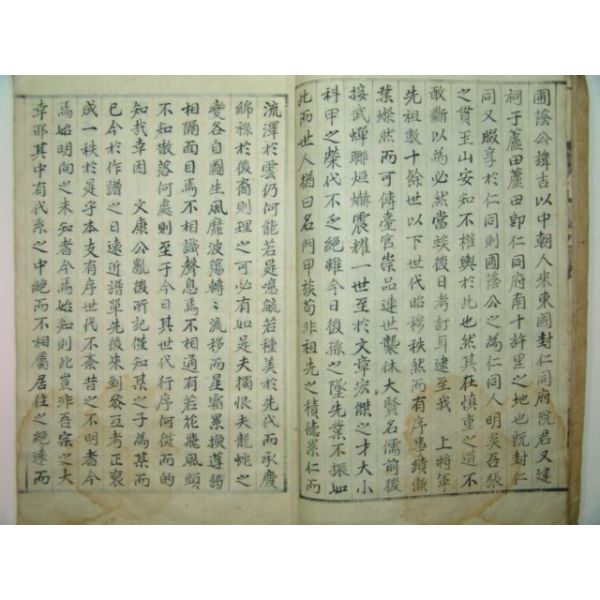 圃蔭公諱吉以中朝人來東國封仁同府院君又建
祠于蘆田蘆田卽仁同府南十許里之地也旣封仁
同又啜享於仁同則圃蔭公之爲仁同人明矣吾張
之貫玉山安知不權輿於此也然其在愼重之道不
敢斷以爲必然當竢後日考訂耳逮至我 上將軍
先祖數十餘世以下世代昭穆秩然而有序事蹟燦
葉燦然而可傳臺官崇品連世襲休大賢名儒前後
接武蟬聯烜爀震耀一世至於文章宏傑之才大小
科甲之榮代不乏絶雖今日後孫之墜先業不振如
此而世人猶曰名門甲族苟非祖先之積德累仁而
流澤於雲仍何能若是噫毓若種美於先代而承慶
綿祿於後裔則理之可必有如是夫獨恨夫龍蛇之
變各自圖生風靡波蕩轉〻流移而星霜累換遵弱
相隔面目焉不相識聲息焉不相通有若花飛風頭
不知散落何處則至于今日其世代行序何從而的
知哉幸因 文康公亂後所記僅知某之子爲某而
已今於作譜之日遠近譜單先後來到參互考正裒
成一秩於是乎本支有序世代不紊昔之不明者今
焉始明向之未知者今焉始知則此豈非吾宗之大
幸耶其中有代系之中絶而不相屬居住之絶遠而